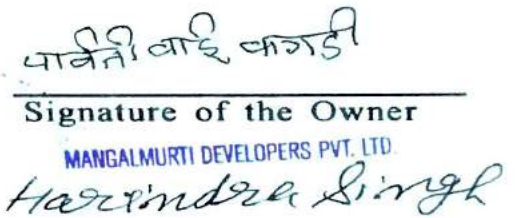 पार्वती बाई कगडी
Signature of the Owner
MANGALMURTI DEVELOPERS PVT. LTD.
Harindra Singh